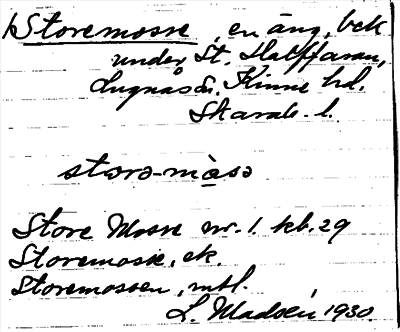 Storemosse, en äng, bek
under St. Halffaran,
Lugnås s. Kinne hd.
Skarab. l.
storə-mòsə
Store Mosse nr. 1. kb. 29
Storemosse, ek.
Storemossen, mtl.
1930.